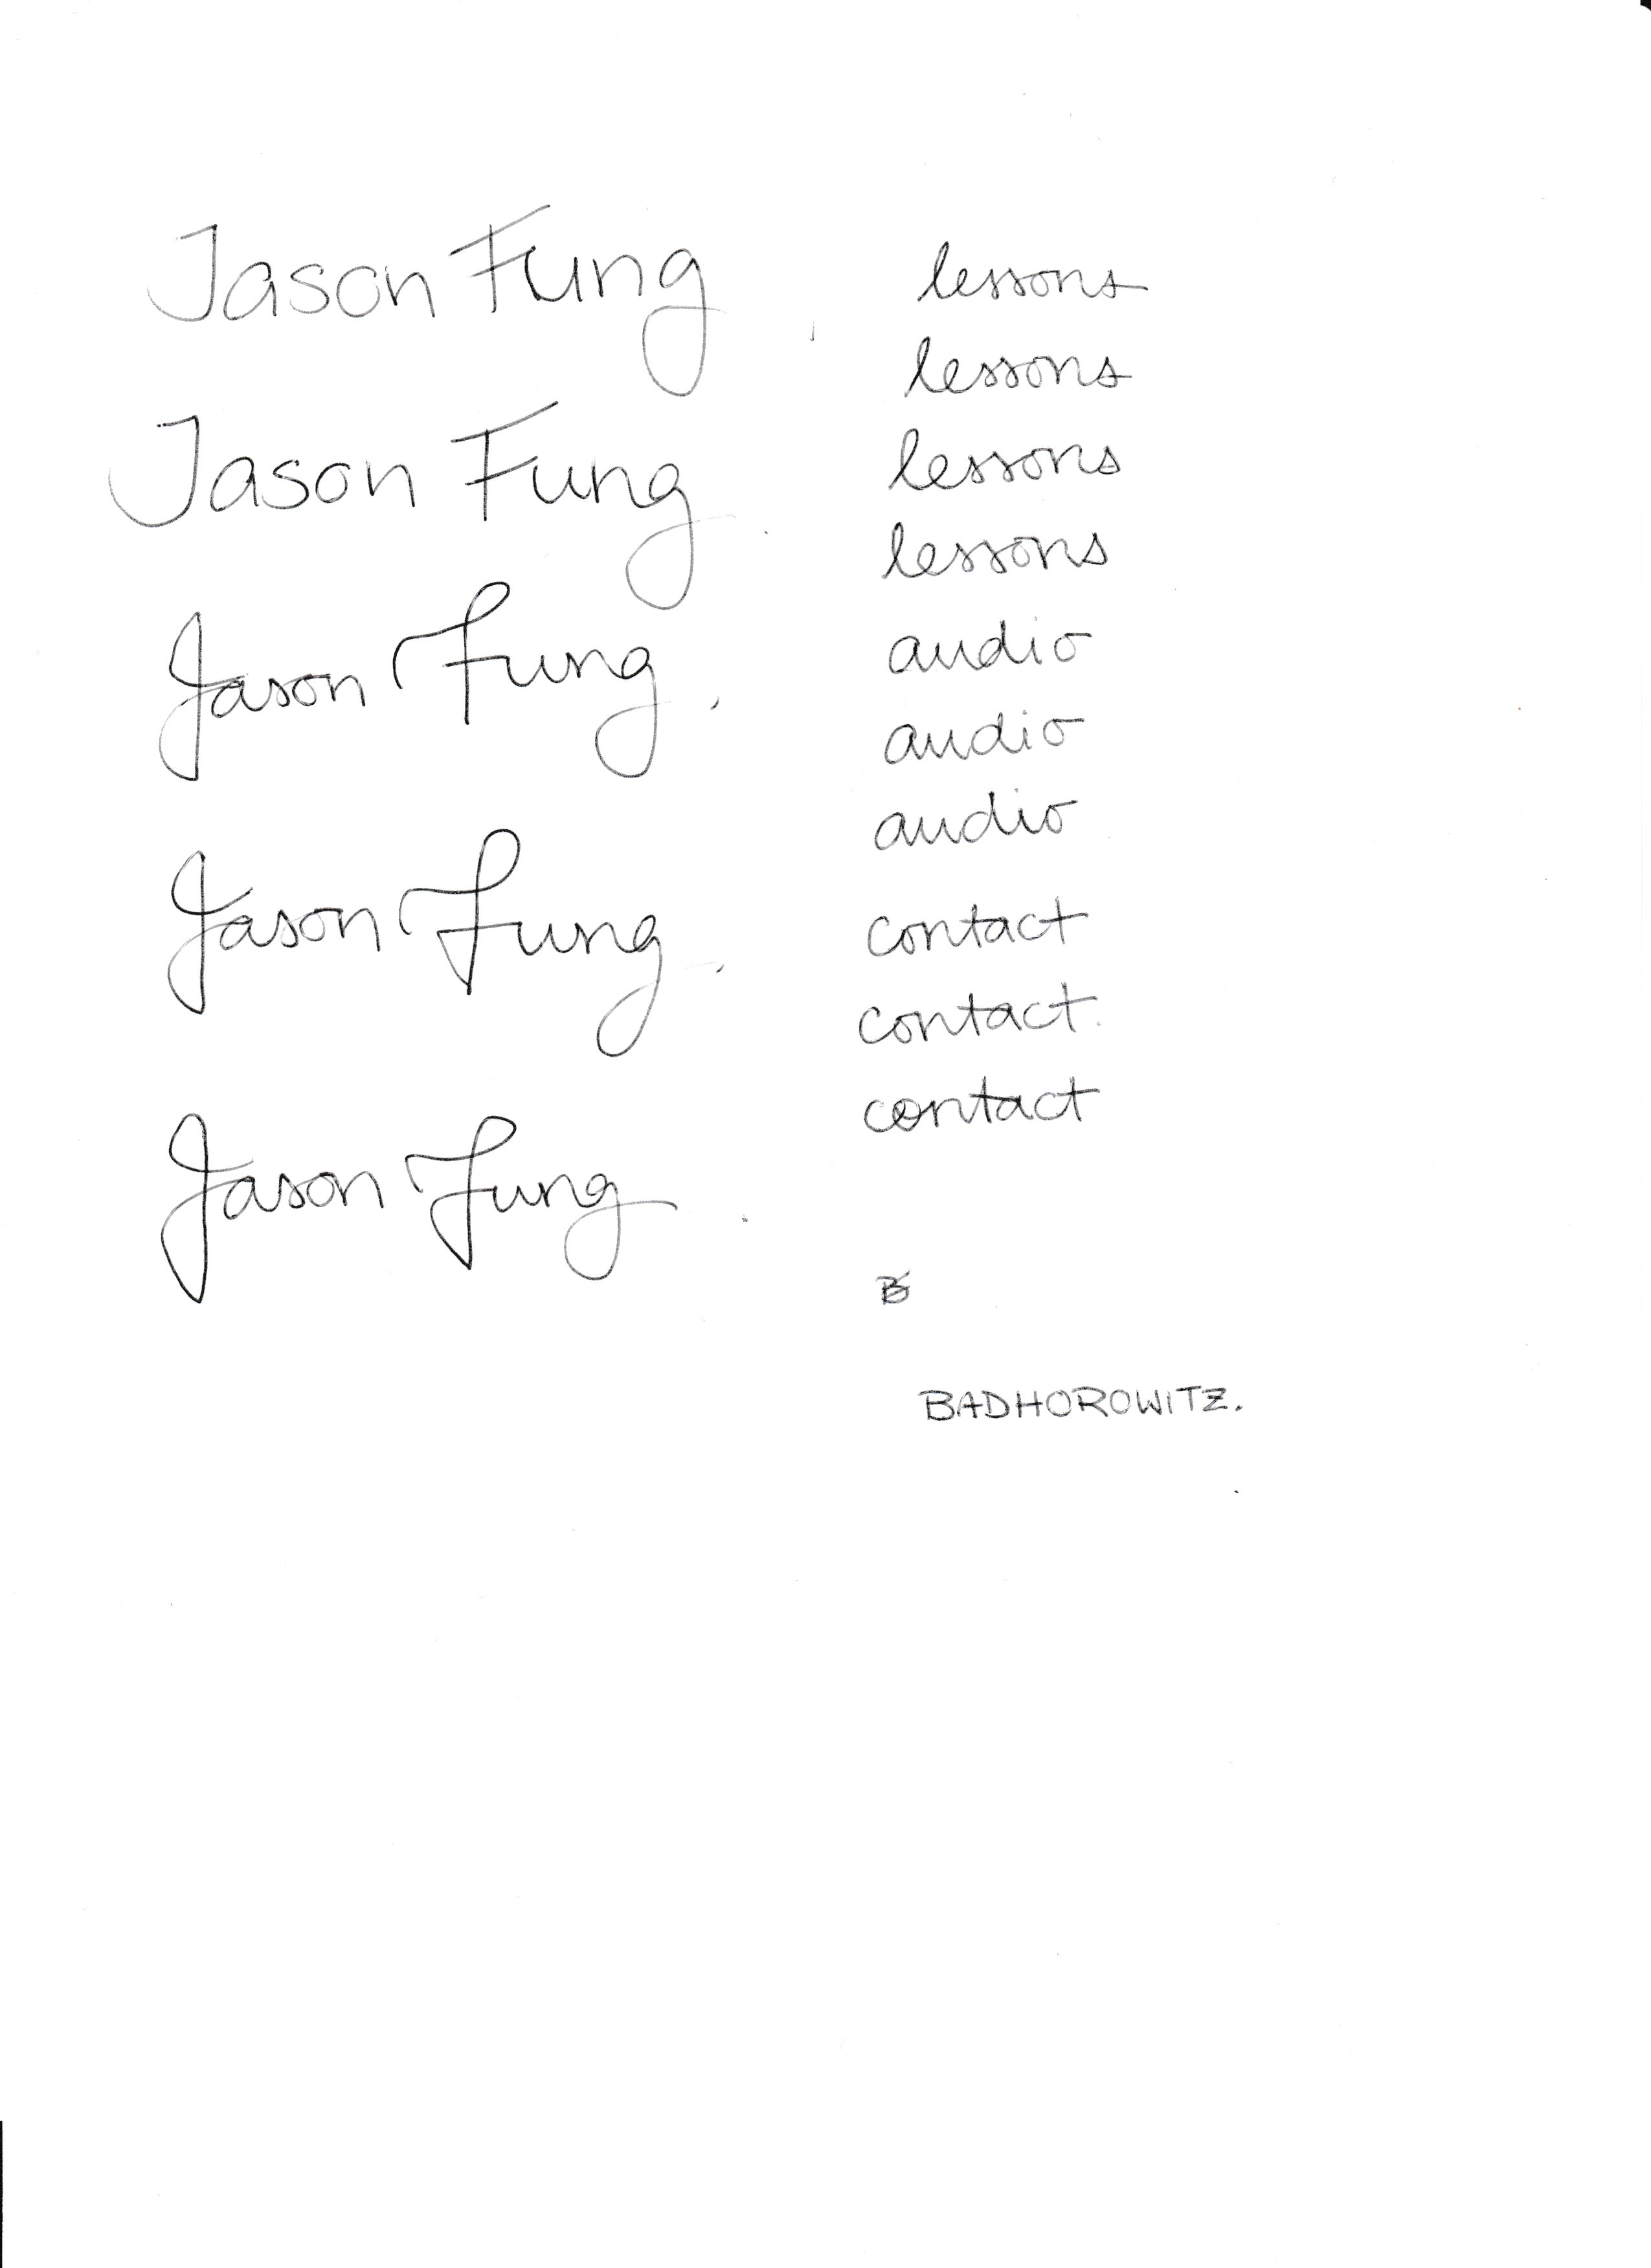 Jason Fung
Jason Fung
Jason Fung
Jason Fung
Jason Fung
lessons
lessons
lessons
lessons
audio
audio
audio
contact
contact
contact
B
BADHOROWITZ.